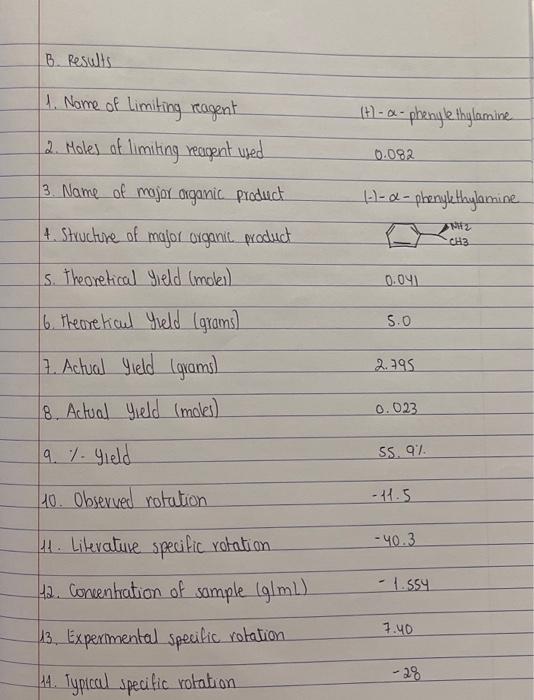 B. Results
1. Name of Limiting reagent (+)-α-phenylethylamine
2. Moles of limiting reagent used 0.082
3. Name of major organic product (-)-α-phenylethylamine
4. Structure of major organic product NH2
CH3
5. Theoretical Yield (moles) 0.041
6. Theoretical Yield (grams) 5.0
7. Actual Yield (grams) 2.795
8. Actual Yield (moles) 0.023
9. % Yield 55.9%
10. Observed rotation -11.5
11. Literature specific rotation -40.3
12. Concentration of sample (g/mL) -1.554
13. Experimental specific rotation 7.40
14. Typical specific rotation -28